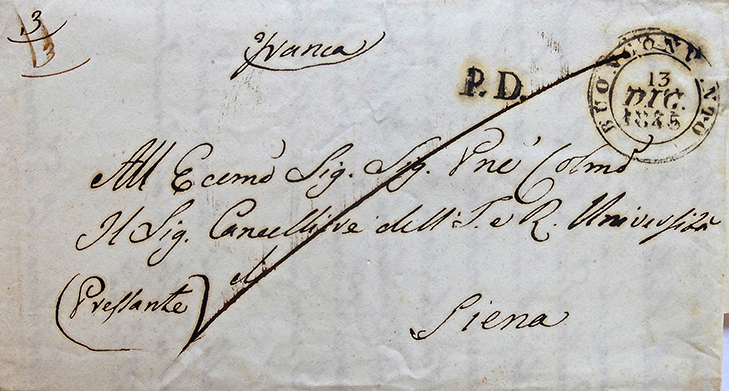 3
13
Franca
P.D.
BUONCONVENTO
13
DIC.
1845
All Ecemo Sig. Sig. Pne Colmo
Il Sig. Cancelliere dell' I. e R. Università
di
(Pressante)
Siena